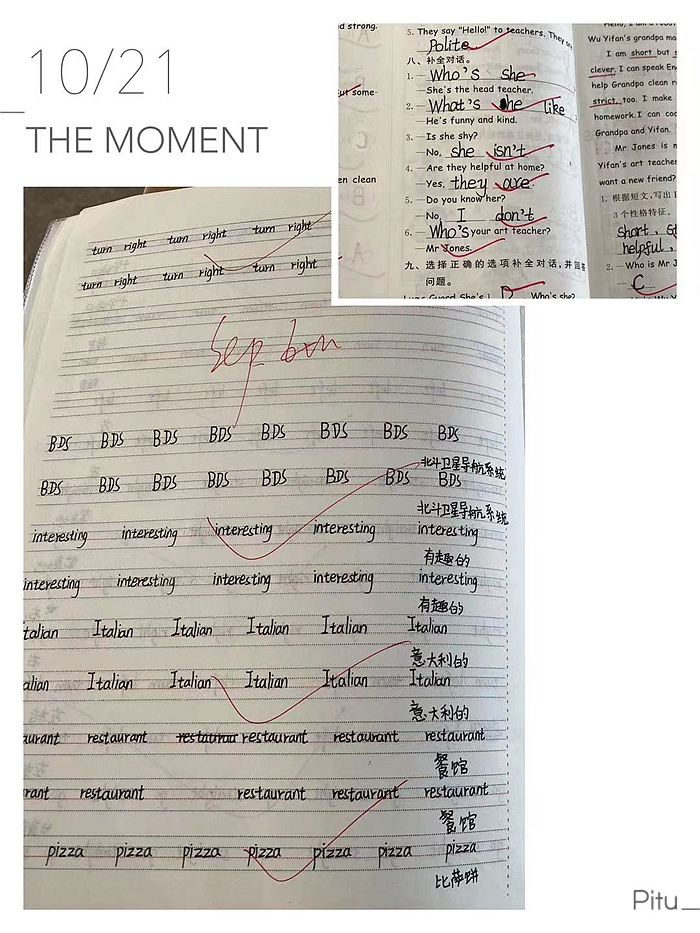 10/21
THE MOMENT
d strong.
5. They say "Hello!" to teachers. They
Polite
八、补全对话。
1. — Who's she
— She's the head teacher.
2. — What's he like
— He's funny and kind.
3. — Is she shy?
— No, she isn't.
4. — Are they helpful at home?
— Yes, they are.
5. — Do you know her?
— No, I don't
6. — Who's your art teacher?
— Mr Jones.
九、选择正确的选项补全对话,并回答
问题。
She's Who's she?
But some-
en clean
Wu Yifan's grandpa ma
I am short but s
clever. I can speak En
help Grandpa clean r
strict, too. I make
homework. I can coo
Grandpa and Yifan.
Mr Jones is
Yifan's art teacher
want a new friend?
1. 根据短文,写出
3个性格特征。
short, st
helpful,
2. — Who is Mr J
C
turn right turn right turn right
turn right turn right turn right
BDS BDS BDS BDS BDS BDS BDS BDS
北斗卫星导航系统
BDS BDS BDS BDS BDS BDS BDS BDS
北斗卫星导航系统
interesting interesting interesting interesting interesting
有趣的
interesting interesting interesting interesting interesting
有趣的
Italian Italian Italian Italian Italian Italian
意大利的
alian Italian Italian Italian Italian Italian
意大利的
aurant restaurant restaurant restaurant restaurant
餐馆
rant restaurant restaurant restaurant restaurant
餐馆
pizza pizza pizza pizza pizza pizza pizza
比萨饼
Pitu